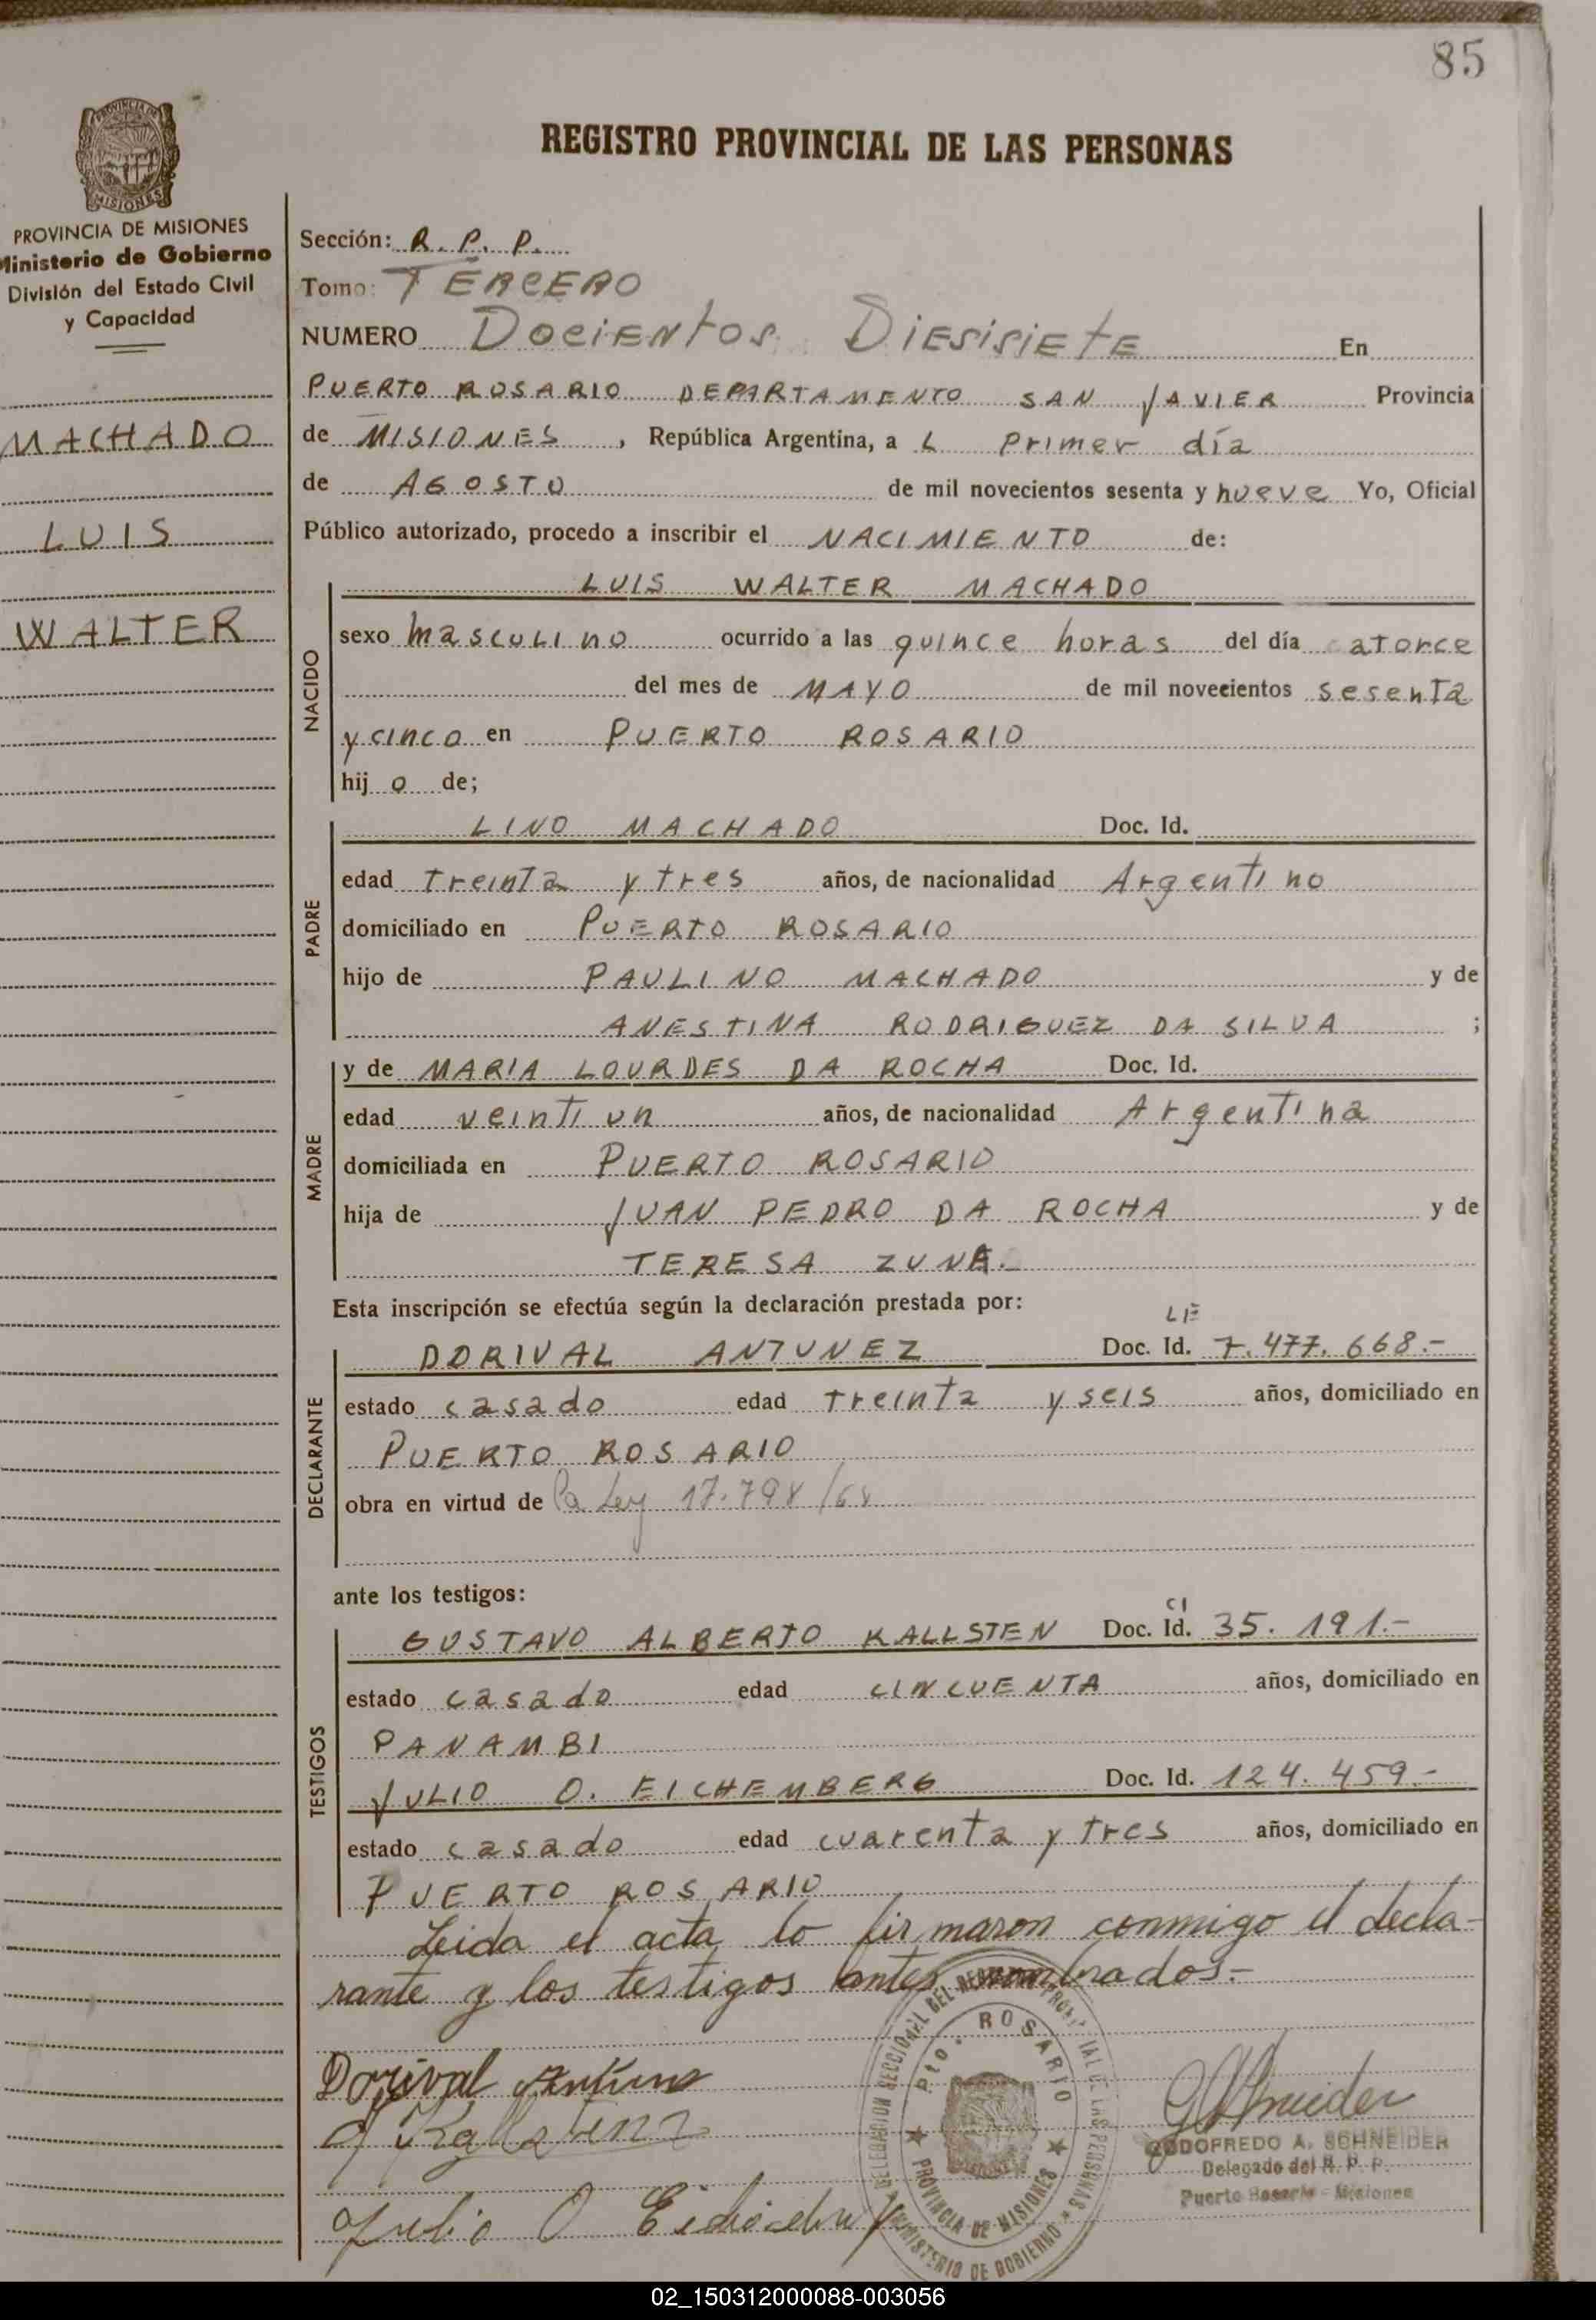 85
REGISTRO PROVINCIAL DE LAS PERSONAS
PROVINCIA DE MISIONES
PROVINCIA DE MISIONES
Ministerio de Gobierno
División del Estado Civil
y Capacidad
MACHADO
LUIS
WALTER
Sección: R. P. P.
Tomo: TERCERO
NUMERO DOCIENTOS DIESISIETE En
PUERTO ROSARIO DEPARTAMENTO SAN JAVIER Provincia
de MISIONES, República Argentina, a L Primer día
de AGOSTO de mil novecientos sesenta y nueve Yo, Oficial
Público autorizado, procedo a inscribir el NACIMIENTO de:
LUIS WALTER MACHADO
NACIDO
sexo masculino ocurrido a las quince horas del día catorce
del mes de MAYO de mil novecientos sesenta
y cinco en PUERTO ROSARIO
hij o de;
PADRE
LINO MACHADO Doc. Id.
edad treinta y tres años, de nacionalidad Argentino
domiciliado en PUERTO ROSARIO
hijo de PAULINO MACHADO y de
ANESTINA RODRIGUEZ DA SILVA ;
MADRE
y de MARIA LOURDES DA ROCHA Doc. Id.
edad veintiun años, de nacionalidad Argentina
domiciliada en PUERTO ROSARIO
hija de JUAN PEDRO DA ROCHA y de
TERESA ZUNE.
Esta inscripción se efectúa según la declaración prestada por:
LE
DECLARANTE
DORIVAL ANTUNEZ Doc. Id. 7.477.668.-
estado casado edad treinta y seis años, domiciliado en
PUERTO ROSARIO
obra en virtud de la Ley 17.798/68
ante los testigos:
CI
TESTIGOS
GUSTAVO ALBERTO KALLSTEN Doc. Id. 35.191.-
estado casado edad CINCUENTA años, domiciliado en
PANAMBI
JULIO O. EICHEMBERG Doc. Id. 124.459.-
estado casado edad cuarenta y tres años, domiciliado en
PUERTO ROSARIO
Leida el acta lo firmaron conmigo el decla-
rante y los testigos antes nombrados.-
Dorival
Julio O
Pto. ROSARIO
PROVINCIA DE MISIONES
MINISTERIO DE GOBIERNO
GODOFREDO A. SCHNEIDER
Delegado del R. P. P.
Puerto Rosario - Misiones
02_150312000088-003056